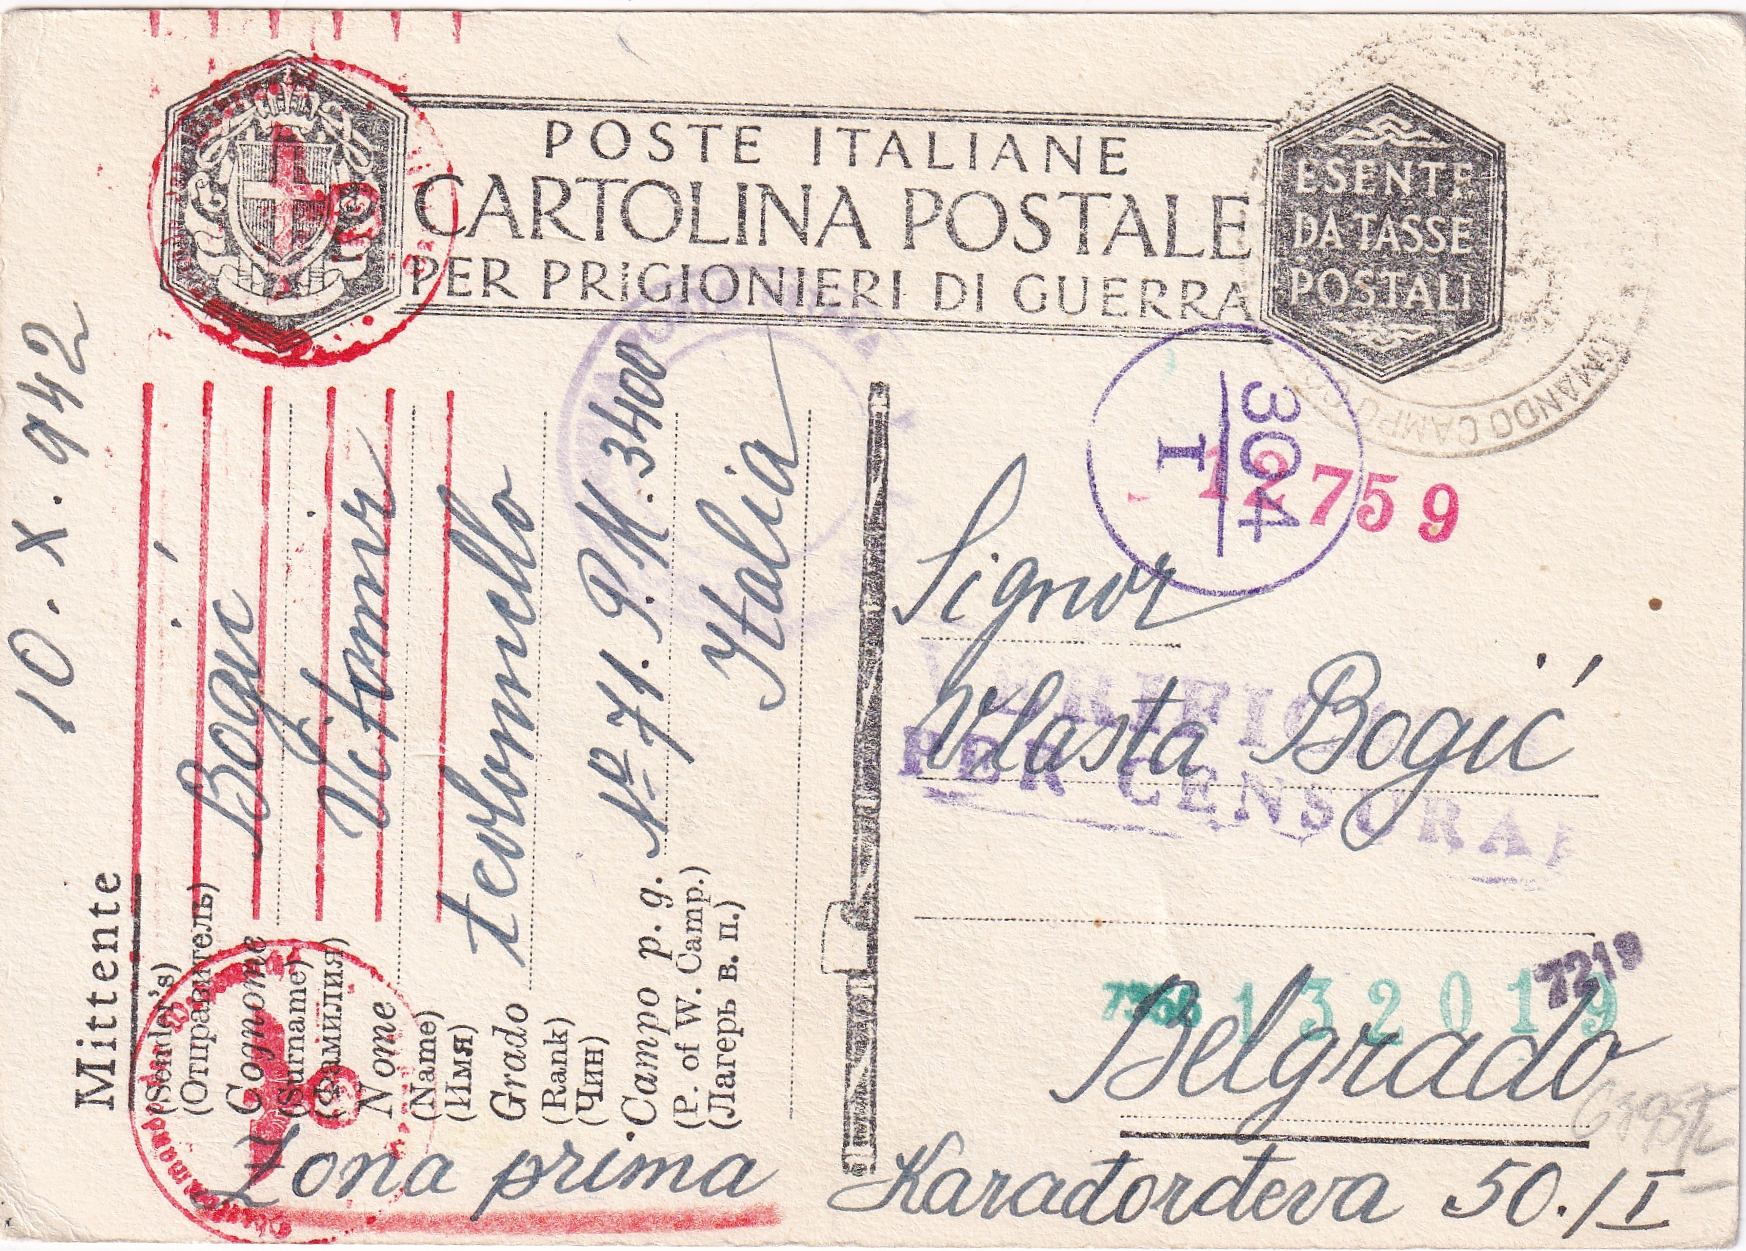 POSTE ITALIANE
CARTOLINA POSTALE
PER PRIGIONIERI DI GUERRA
ESENTE
DA TASSE
POSTALI
10. X. 942
Mittente
(Sender's)
(Отправитель)
Cognome Bogić
(Surname)
(Фамилия)
Nome Vitomir
(Name)
(Имя)
Grado
(Rank)
(Чин)
Campo p. g. No 71. P.M. 3400
(P. of W. Camp.)
(Лагерь в. п.)
Italia
Zona prima
304
I
12759
Signor
Vlasta Bogić
PER CENSURA
7219
132019
Belgrado
Karađorđeva 50./I